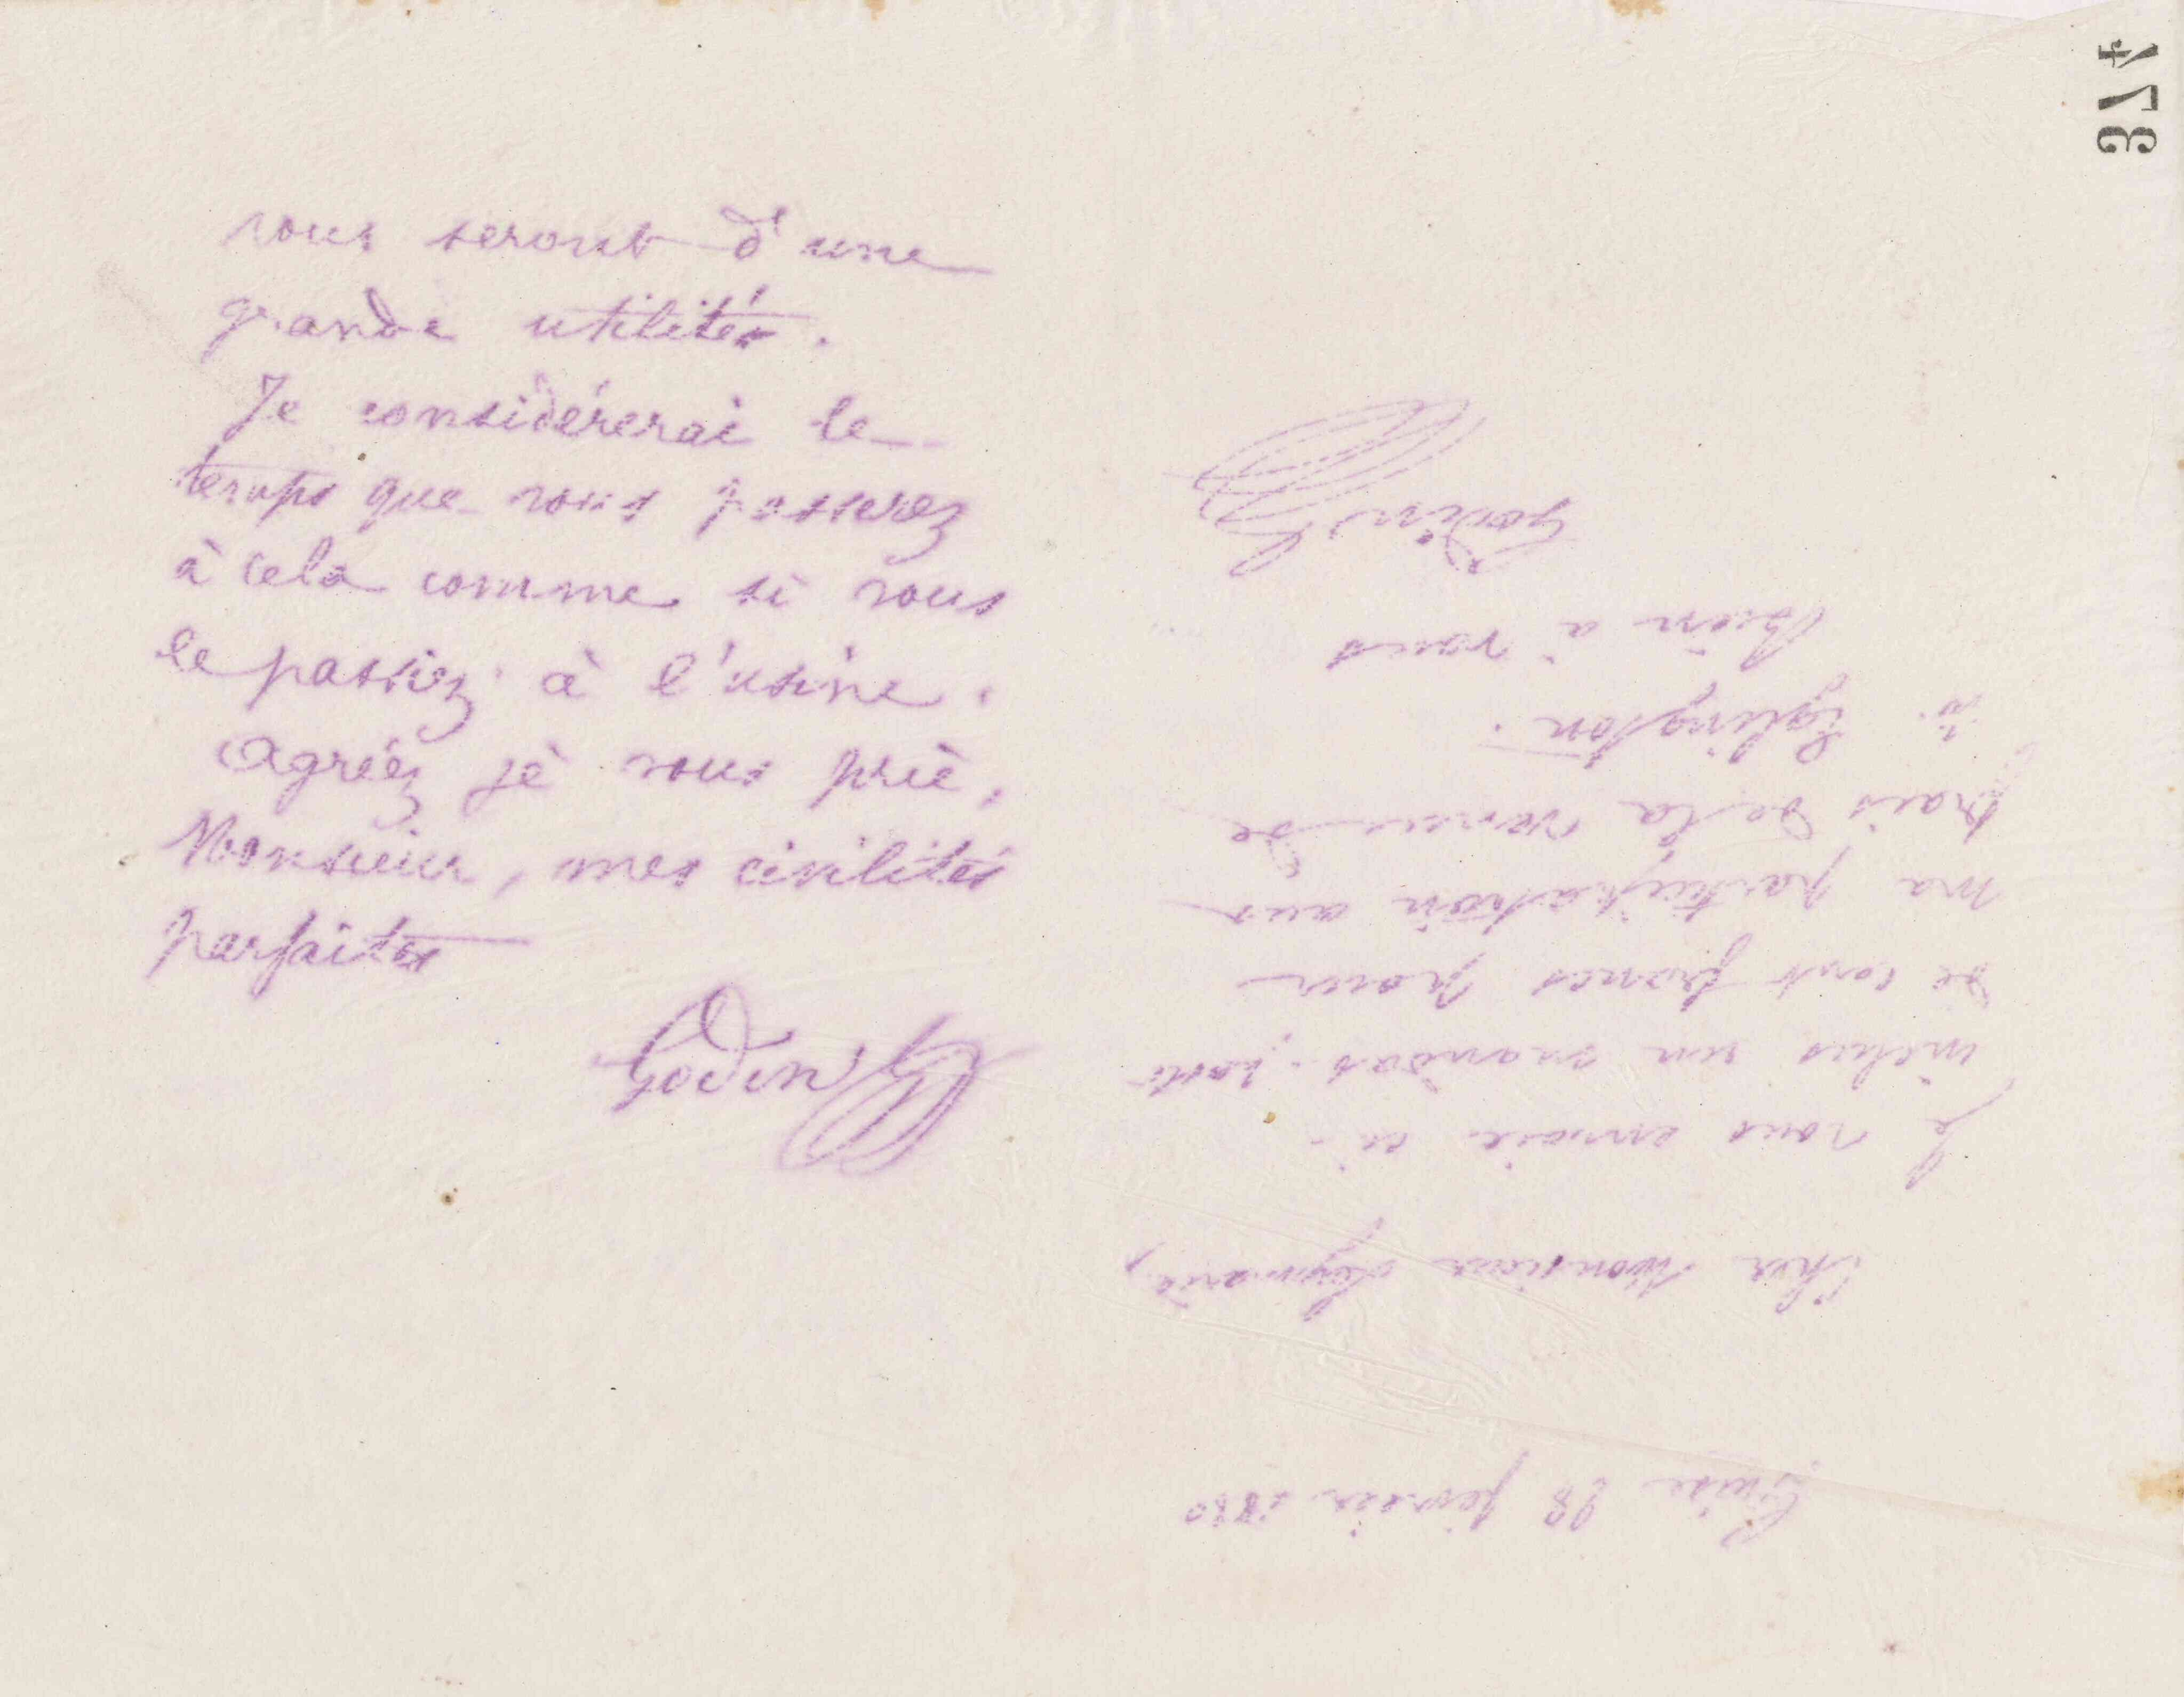 vous seront d'une
grande utilité.
Je considérerai le
temps que vous passerez
à cela comme si vous
le passiez à l'usine.
Agréez je vous prie,
Monsieur, mes civilités
parfaites
Godin
Guise 28 février 1880
Cher Monsieur Leymarie,
Je vous envoie ci-
inclus un mandat-poste
de cent francs pour
ma participation aux
frais de la venue de
Eglington.
Bien à vous
Godin